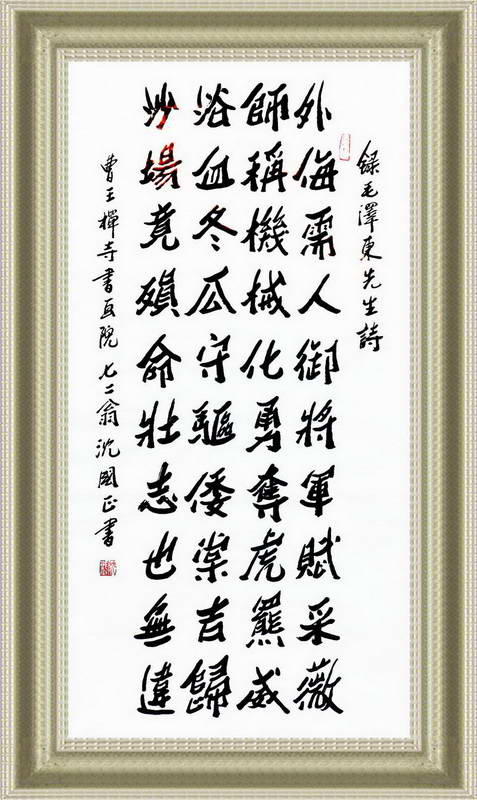 錄毛澤東先生詩
外侮需人御將軍賦采薇
師稱機械化勇奪虎羆威
浴血冬瓜守驅倭棠吉歸
沙場竟殞命壯志也無違
曹王禪寺書画院 七二翁沈國正書